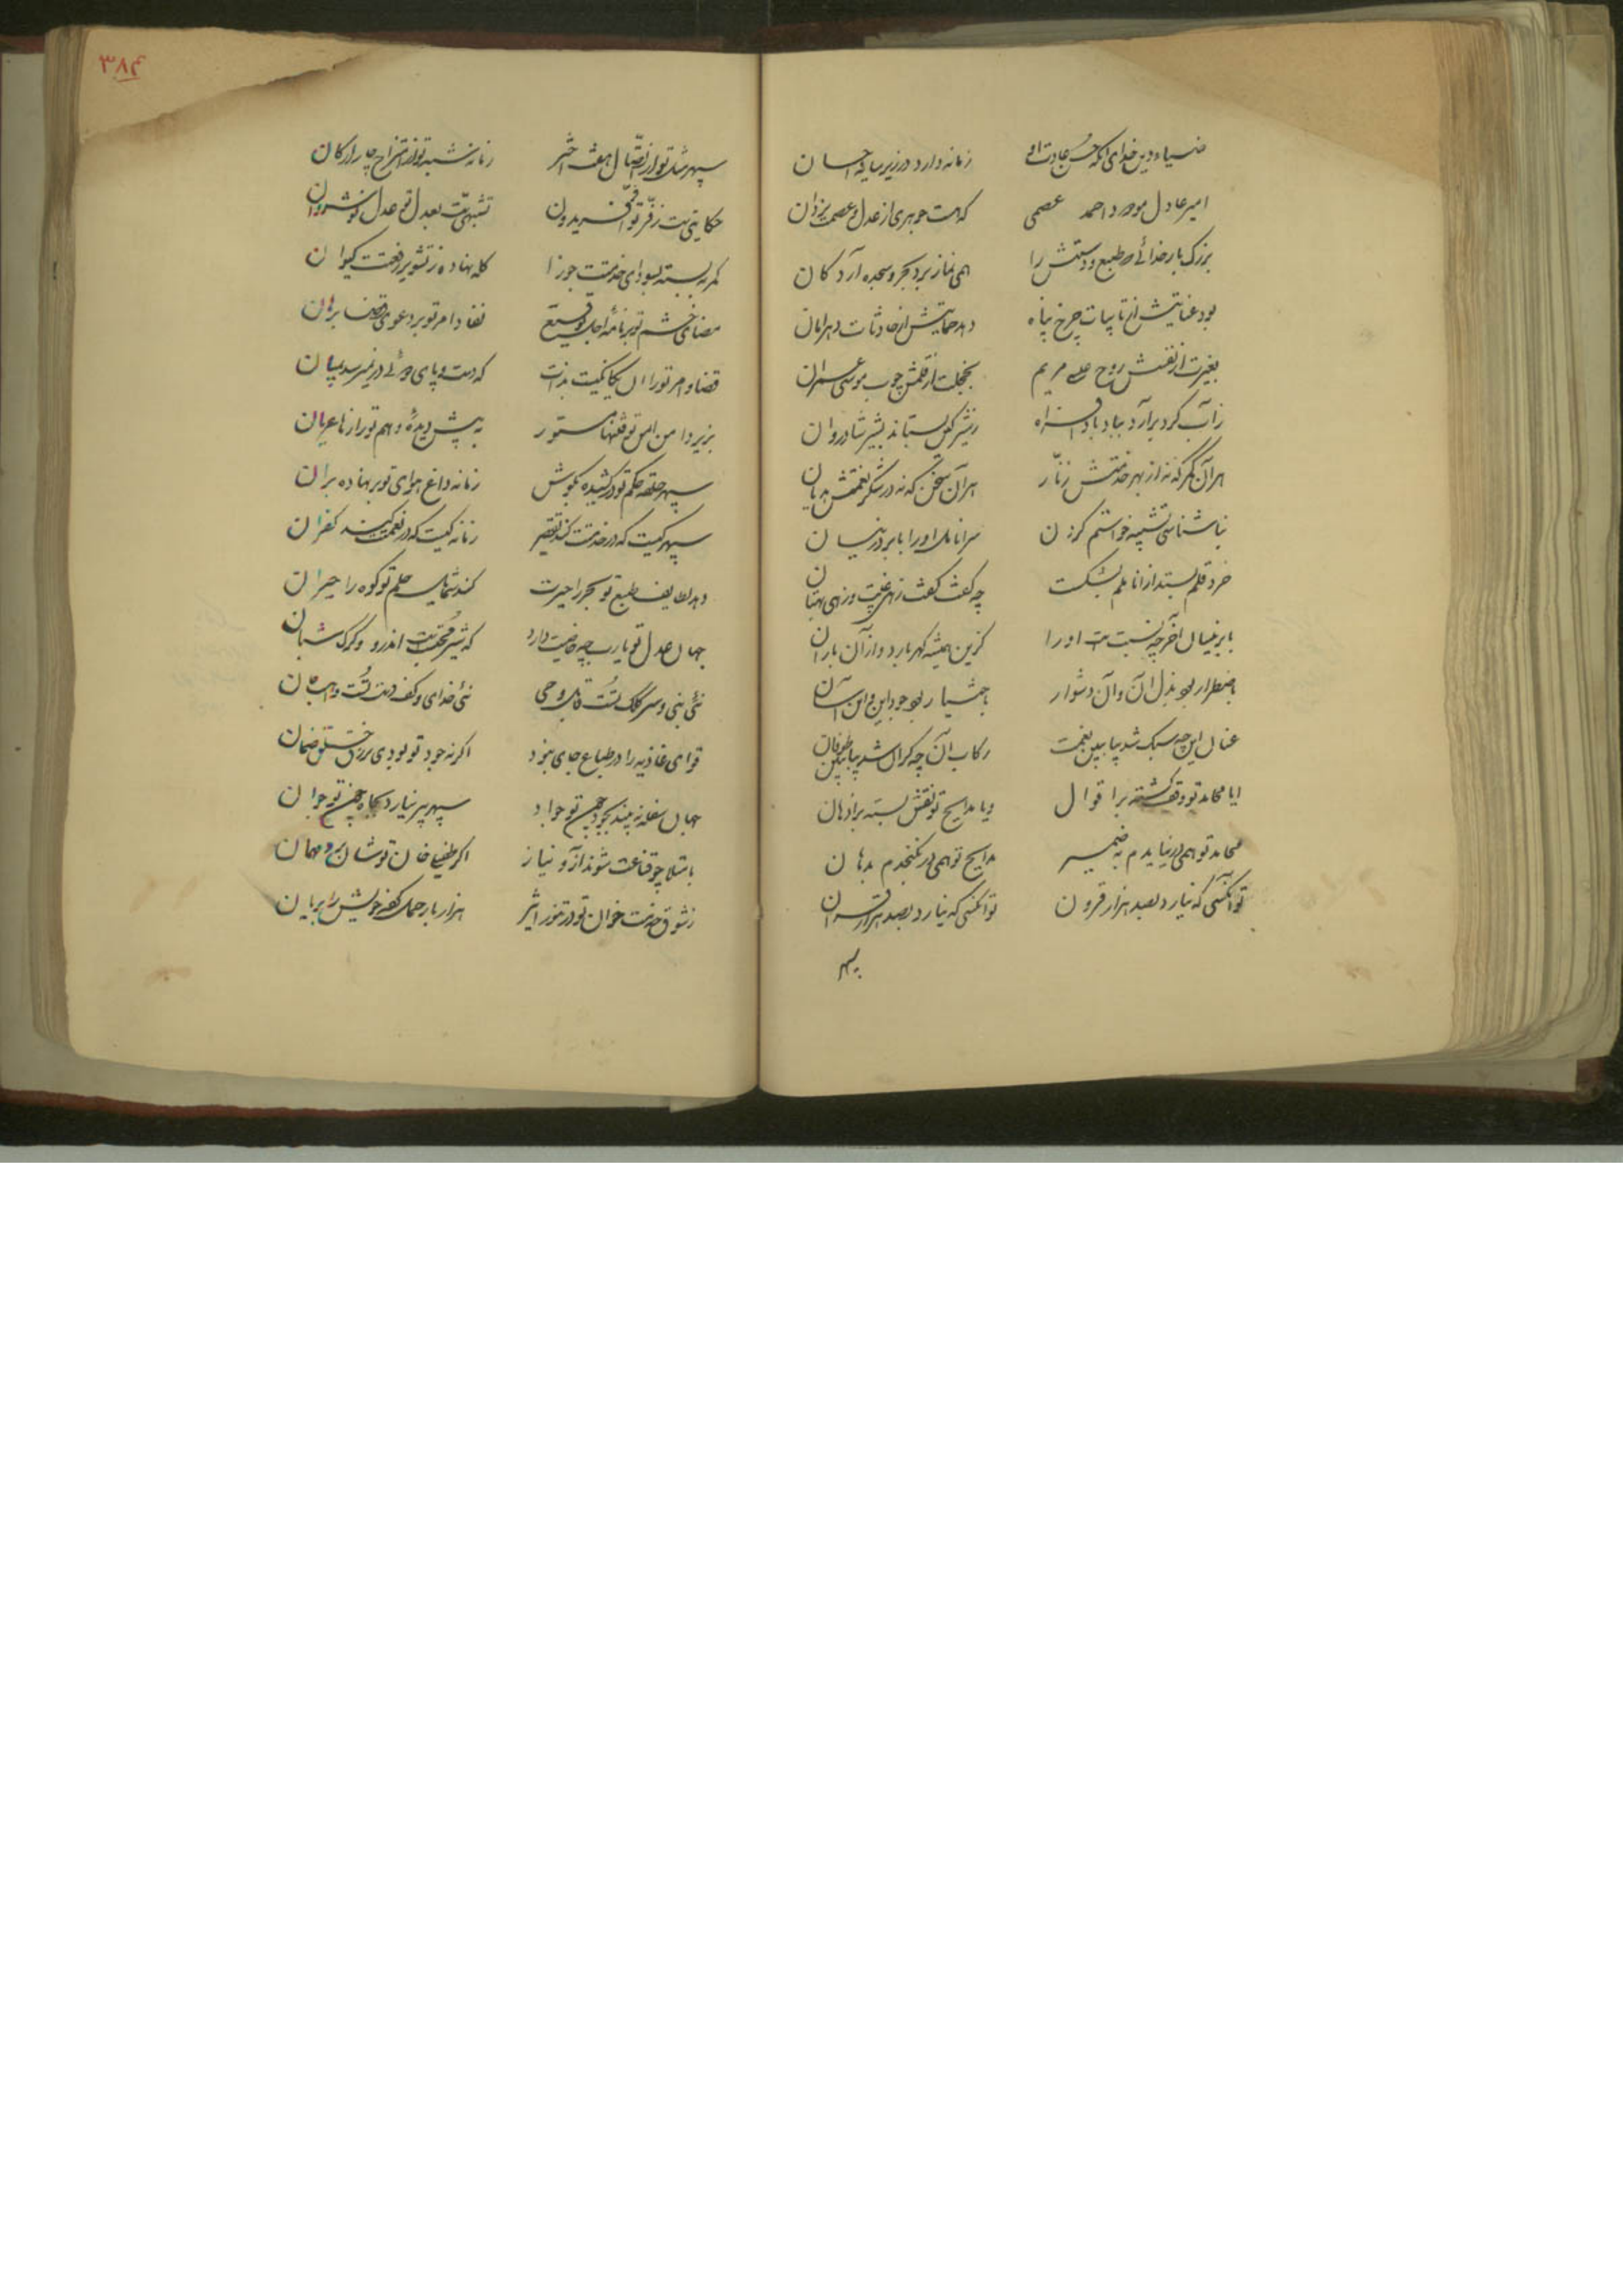 ضیاء دین خدای آنکه حسن عادت او    زمانه دارد در زیر سایه احسان
امیر عادل مودود احمد عصمی    که هست جوهری از عدل و عصمت یزدان
بزرگ بار خدائی که طبع و دستش را    همی نماز برد بحر و سجده آرد کان
بود عنایتش از نایبات چرخ پناه    دهد حمایتش از حادثات دهر امان
بغیرت از نفسش روح عیسی مریم    بخجلت از قلمش چوب موسی عمران
ز آب گرد برآرد بباد    ز شیر گل بستاند بشیر شادروان
هر آن کمر که نه از بهر خدمتش زنار    هر آن سخن که نه در شکر نعمتش هذیان
بناشناسی تشبیه خواستم کردن    سر انامل او را بابر در نیسان
خرد قلم بستد از اناملم بشکست    چه گفت گفت زهی غیبت و زهی بهتان
بابر نیسان آخر چه نسبت است او را    کزین همیشه گهر بارد و از آن باران
باضطرار بود بذل آن و آن دشوار    باختیار بود جود این و این آسان
عنان این چه سبک شد بیا ببین نعمت    رکاب آن چه گران شد بیا ببین طوفان
ایا محامد تو وقف گشته بر اقوال    و یا مدایح تو نقش بسته بر اذهان
محامد تو همی در نیایدم بضمیر    مدایح تو همی در نگنجدم بدهان
تو آنکسی که نیارد بصد هزار قرون    تو آنکسی که نیارد بصد هزار قران
سپهر
۳۸۴
سپهر مثل تو از اتصال هفت اختر    زمانه شبه تو از امتزاج چار ارکان
حکایتی است ز فر تو فر افریدون    تشبهی است بعدل تو عدل نوشروان
کمر به بسته بسودای خدمتت جوزا    کله نهاده ز تشویر رفعتت کیوان
مضای خشم تو بر نامه اجل توقیع    نفاذ امر تو بر دعوی قضا برهان
قضا و امر تو را آن یگانگیست بذات    که دست و پای دوئی در نمیرسد بمیان
بزیر دامن امن تو فتنها مستور    به پیش دیده وهم تو رازها عریان
سپهر حلقه حکم تو در کشیده بگوش    زمانه داغ هوای تو بر نهاده بران
سپهر کیست که در خدمتت کند تقصیر    زمانه کیست که در نعمتت کند کفران
دهد لطایف طبع تو بحر را حیرت    کند شمایل حلم تو کوه را حیران
جهان عدل تو یارب چه خاصیت دارد    که شیر محتسبست اندرو و گرگ شبان
نئی نبی و سر کلک تست قابل وحی    نئی خدای و کف دست تست واهب جان
قوای غاذیه را در طباع جای نبود    اگر نه جود تو بودی برزق خلق ضمان
جهان سفله نبیند بجود چون تو جواد    سپهر پیر نیارد بجاه چون تو جوان
بامتلا چو قناعت شوند آز و نیاز    اگر طفیلی خوان تو شان برد مهمان
ز شوق خدمت خوان تو در تنور اثیر    هزار بار حمل کرده خویش را بریان